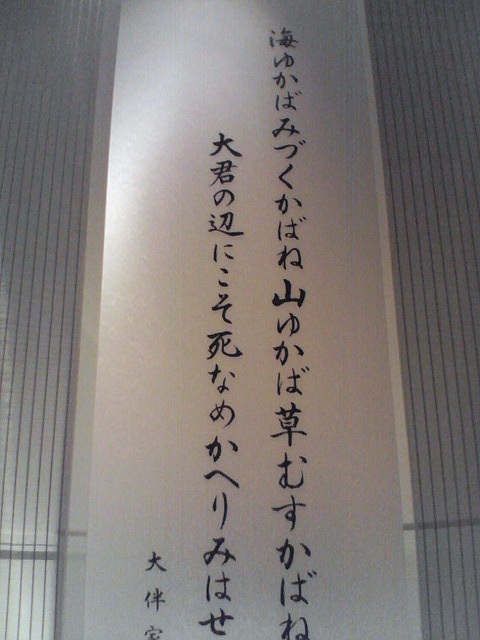 海ゆかばみづくかばね山ゆかば草むすかばね
大君の辺にこそ死なめかへりみはせ
大伴家